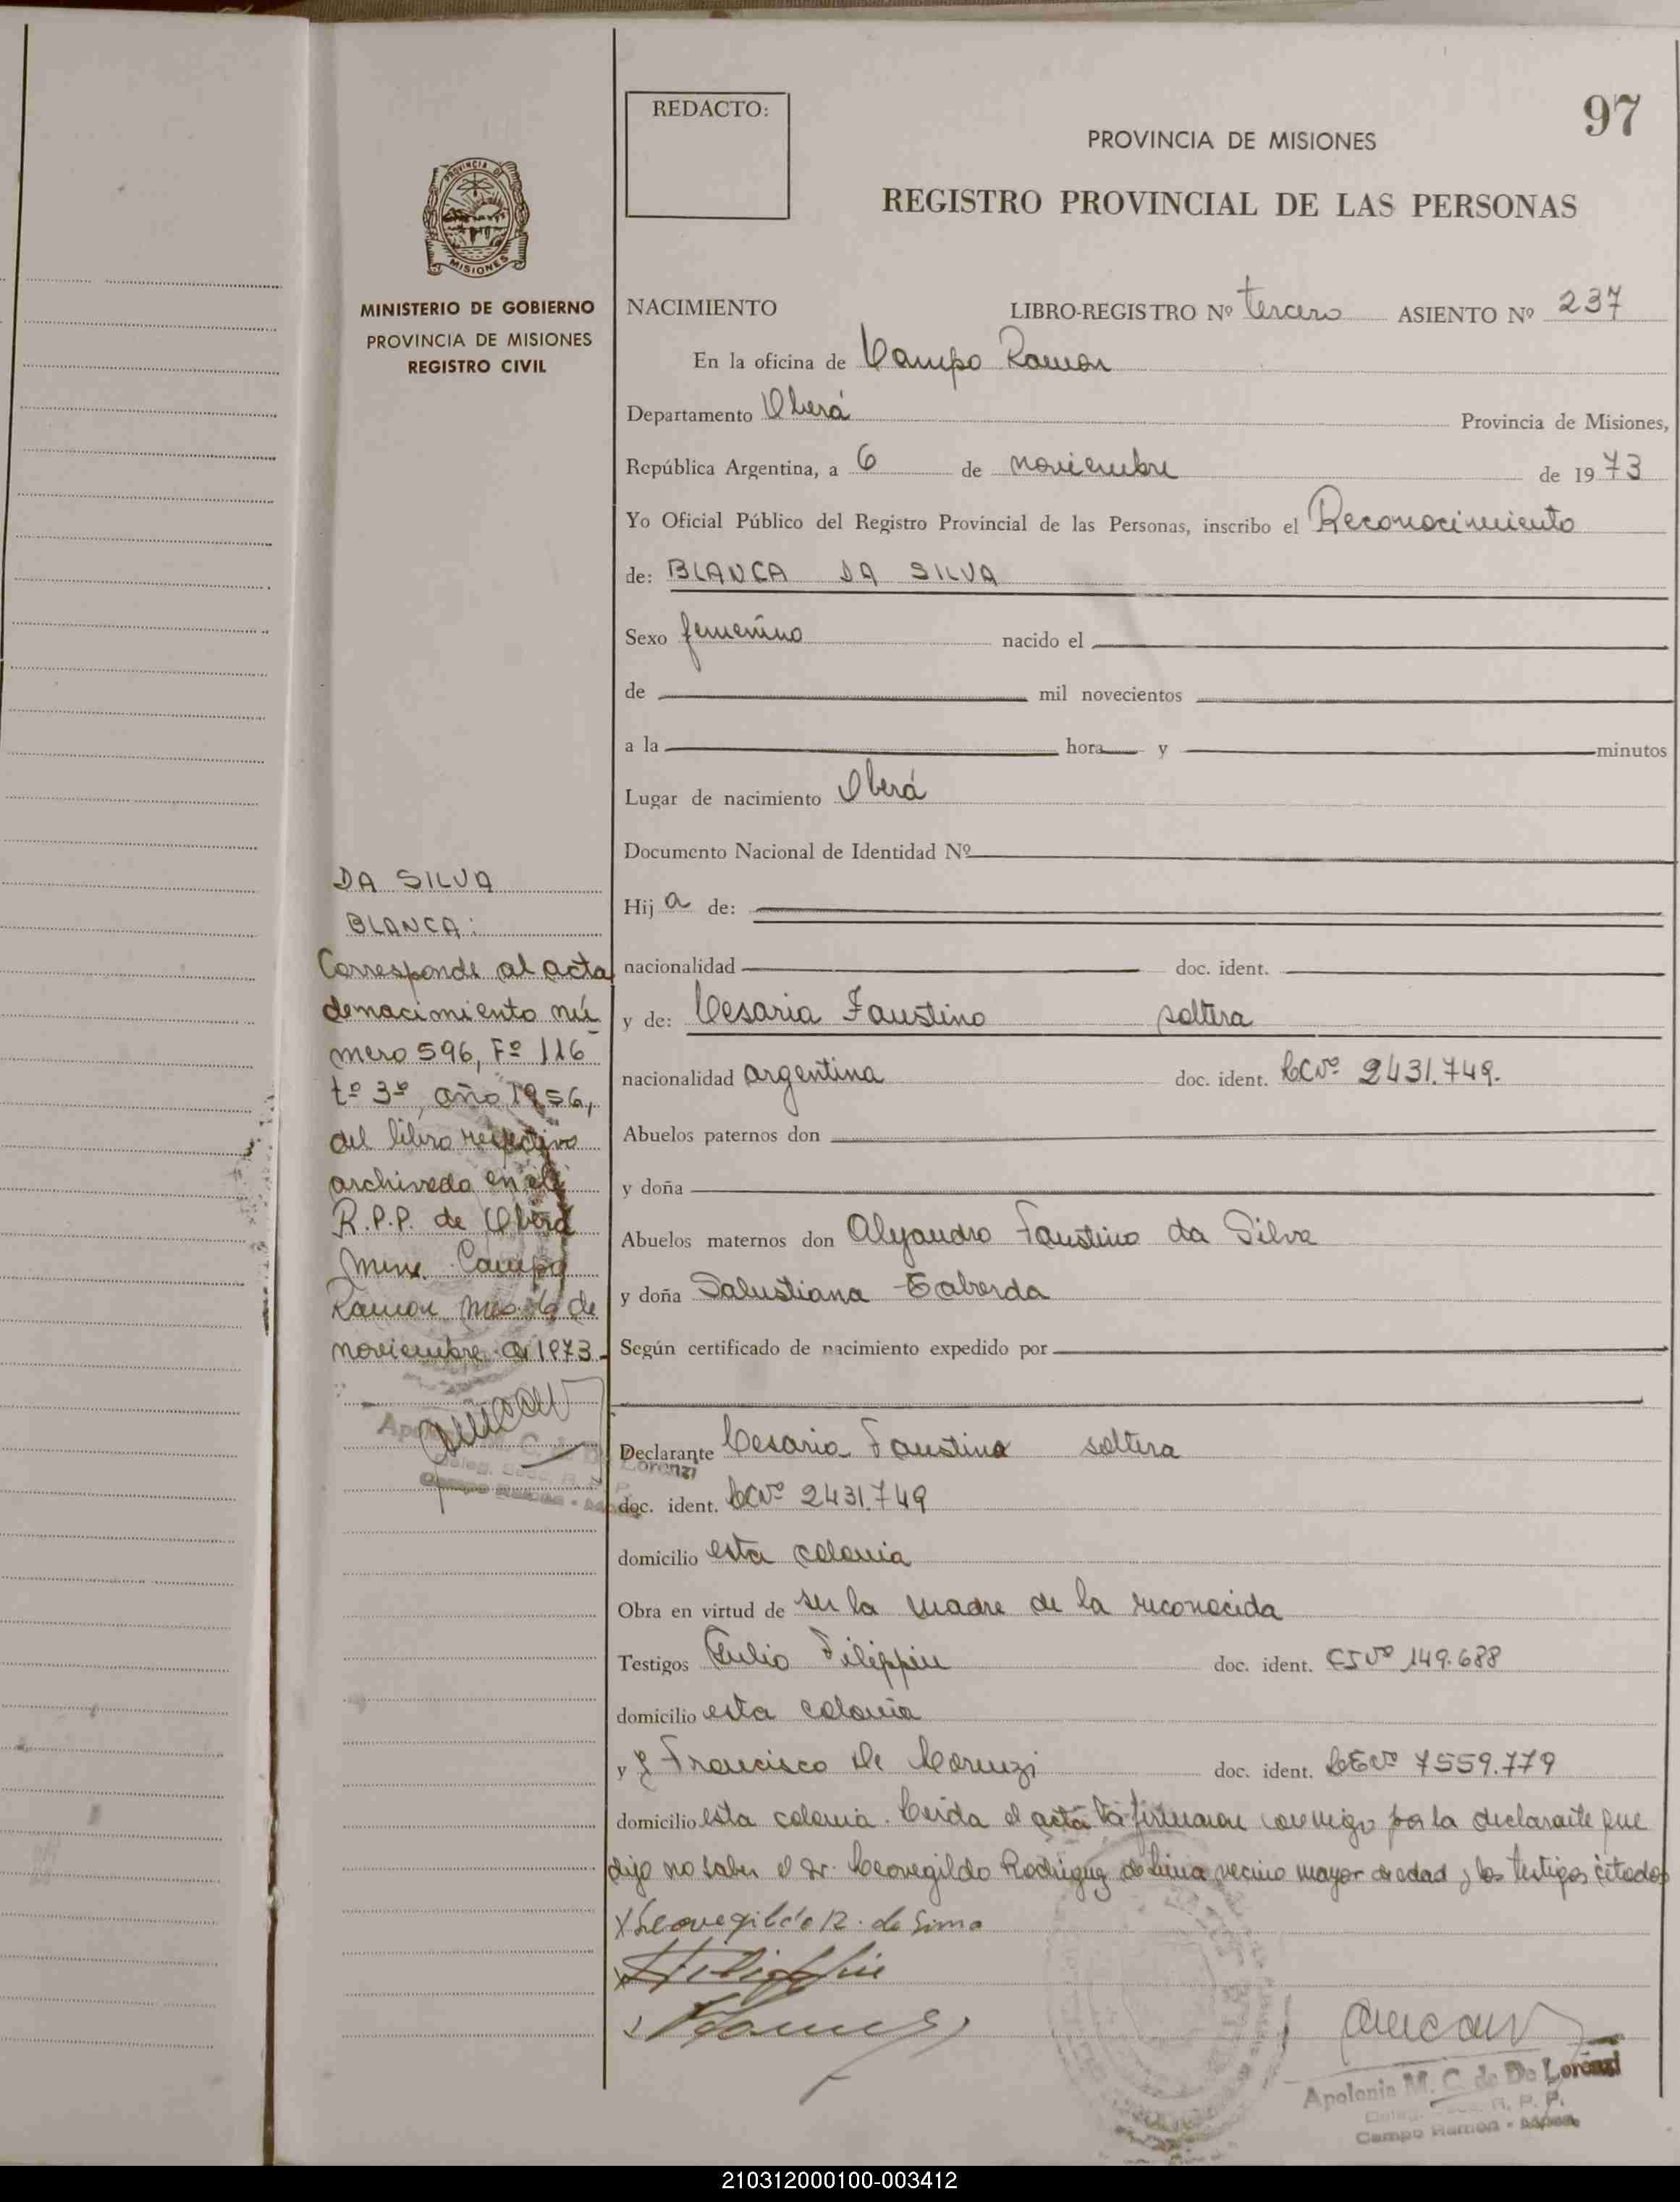 97
REDACTO:
PROVINCIA DE MISIONES
REGISTRO PROVINCIAL DE LAS PERSONAS
PROVINCIA DE
MISIONES
MINISTERIO DE GOBIERNO
PROVINCIA DE MISIONES
REGISTRO CIVIL
NACIMIENTO LIBRO-REGISTRO Nº tercero ASIENTO Nº 237
En la oficina de Campo Ramon
Departamento Oberá Provincia de Misiones,
República Argentina, a 6 de noviembre de 1973
Yo Oficial Público del Registro Provincial de las Personas, inscribo el Reconocimiento
de: BLANCA DA SILVA
Sexo femenino nacido el
de mil novecientos
a la hora y minutos
Lugar de nacimiento Oberá
Documento Nacional de Identidad Nº
Hij a de:
nacionalidad doc. ident.
y de: Cesaria Faustino soltera
nacionalidad argentina doc. ident. LCNº 2431.749.
Abuelos paternos don
y doña
Abuelos maternos don Alejandro Faustino da Silva
y doña Salustiana Taborda
Según certificado de nacimiento expedido por
Declarante Cesaria Faustino soltera
doc. ident. LCNº 2431.749
domicilio esta colonia
Obra en virtud de ser la madre de la reconocida
Testigos Julio Filippin doc. ident. CINº 149.688
domicilio esta colonia
y J Francisco De Lorenzi doc. ident. LENº 7559.779
domicilio esta colonia. Leida el acta la firmaron conmigo por la declarante que
dijo no saber el Sr. Leovegildo Rodriguez de Lima vecino mayor de edad y los testigos citados
X Leovegildo R. de Lima
Apolonia M. C. de De Lorenzi
R. P. P.
Campo Ramon - Mnes.
DA SILVA
BLANCA:
Corresponde al acta
de nacimiento nú
mero 596, Fº 116
tº 3º, año 1956,
del libro respectivo
archivado en el
R.P.P. de Oberá
Mnes. Campo
Ramon, Mnes. 6 de
noviembre de 1973.
Lorenzi
210312000100-003412